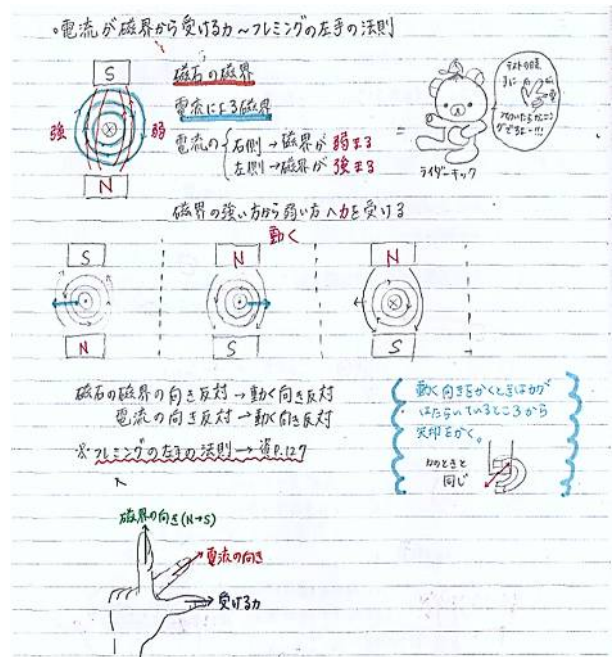 ・電流が磁界から受ける力〜フレミングの左手の法則
S
磁石の磁界
電流による磁界
強
弱
電流の
右側→磁界が弱まる
左側→磁界が強まる
N
=
ライダーキック
磁界の強い方から弱い方へ力を受ける
動く
S
N
N
N
S
S
磁石の磁界の向き反対→動く向き反対
電流の向き反対→動く向き反対
※フレミングの左手の法則→資P.127
動く向きをかくときは力が
はたらいているところから
矢印をかく。
力のときと
同じ
磁界の向き(N→S)
電流の向き
受ける力